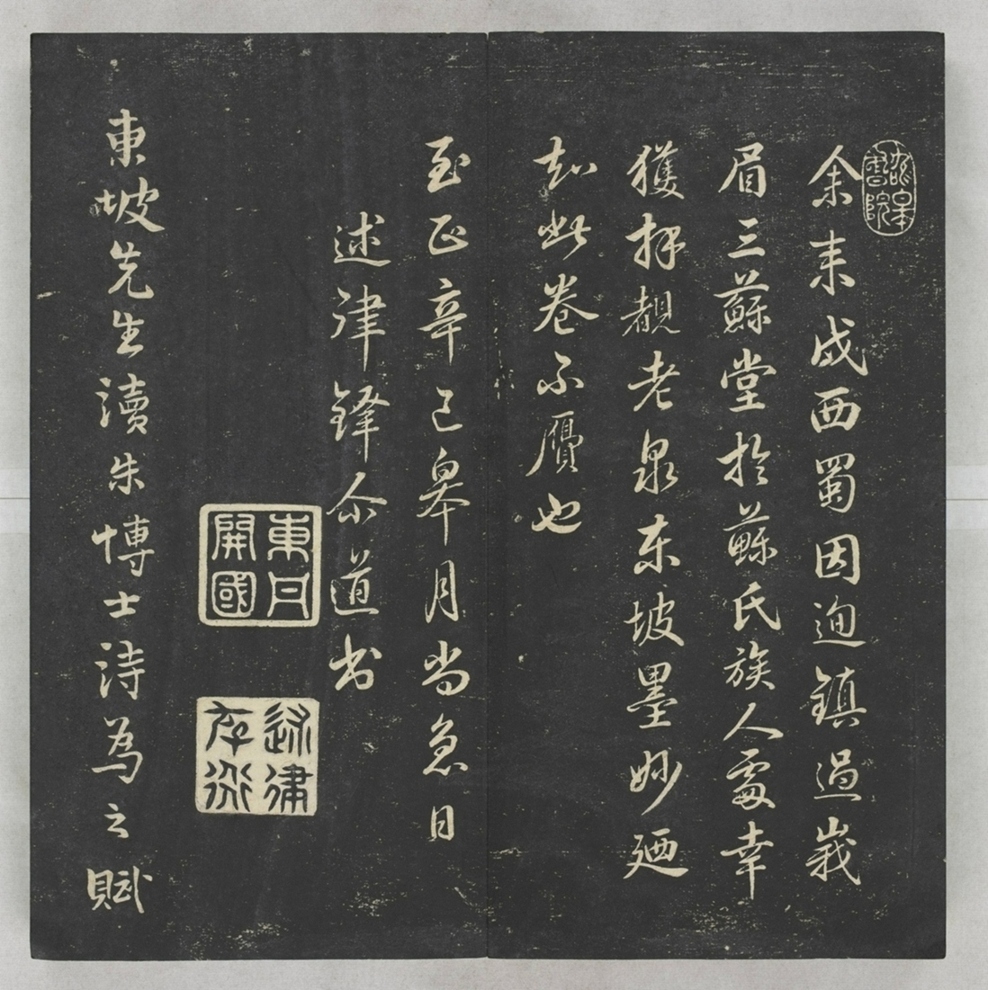 余来戍西蜀因迿鎮過峩
眉三蘇堂於蘇氏族人處幸
獲拜覩老泉东坡墨妙廼
知此卷不贋也
至正辛巳皋月尚急日
述律鐸尒道书
東丹
開國
述律
東坡先生讀朱博士诗為之賦